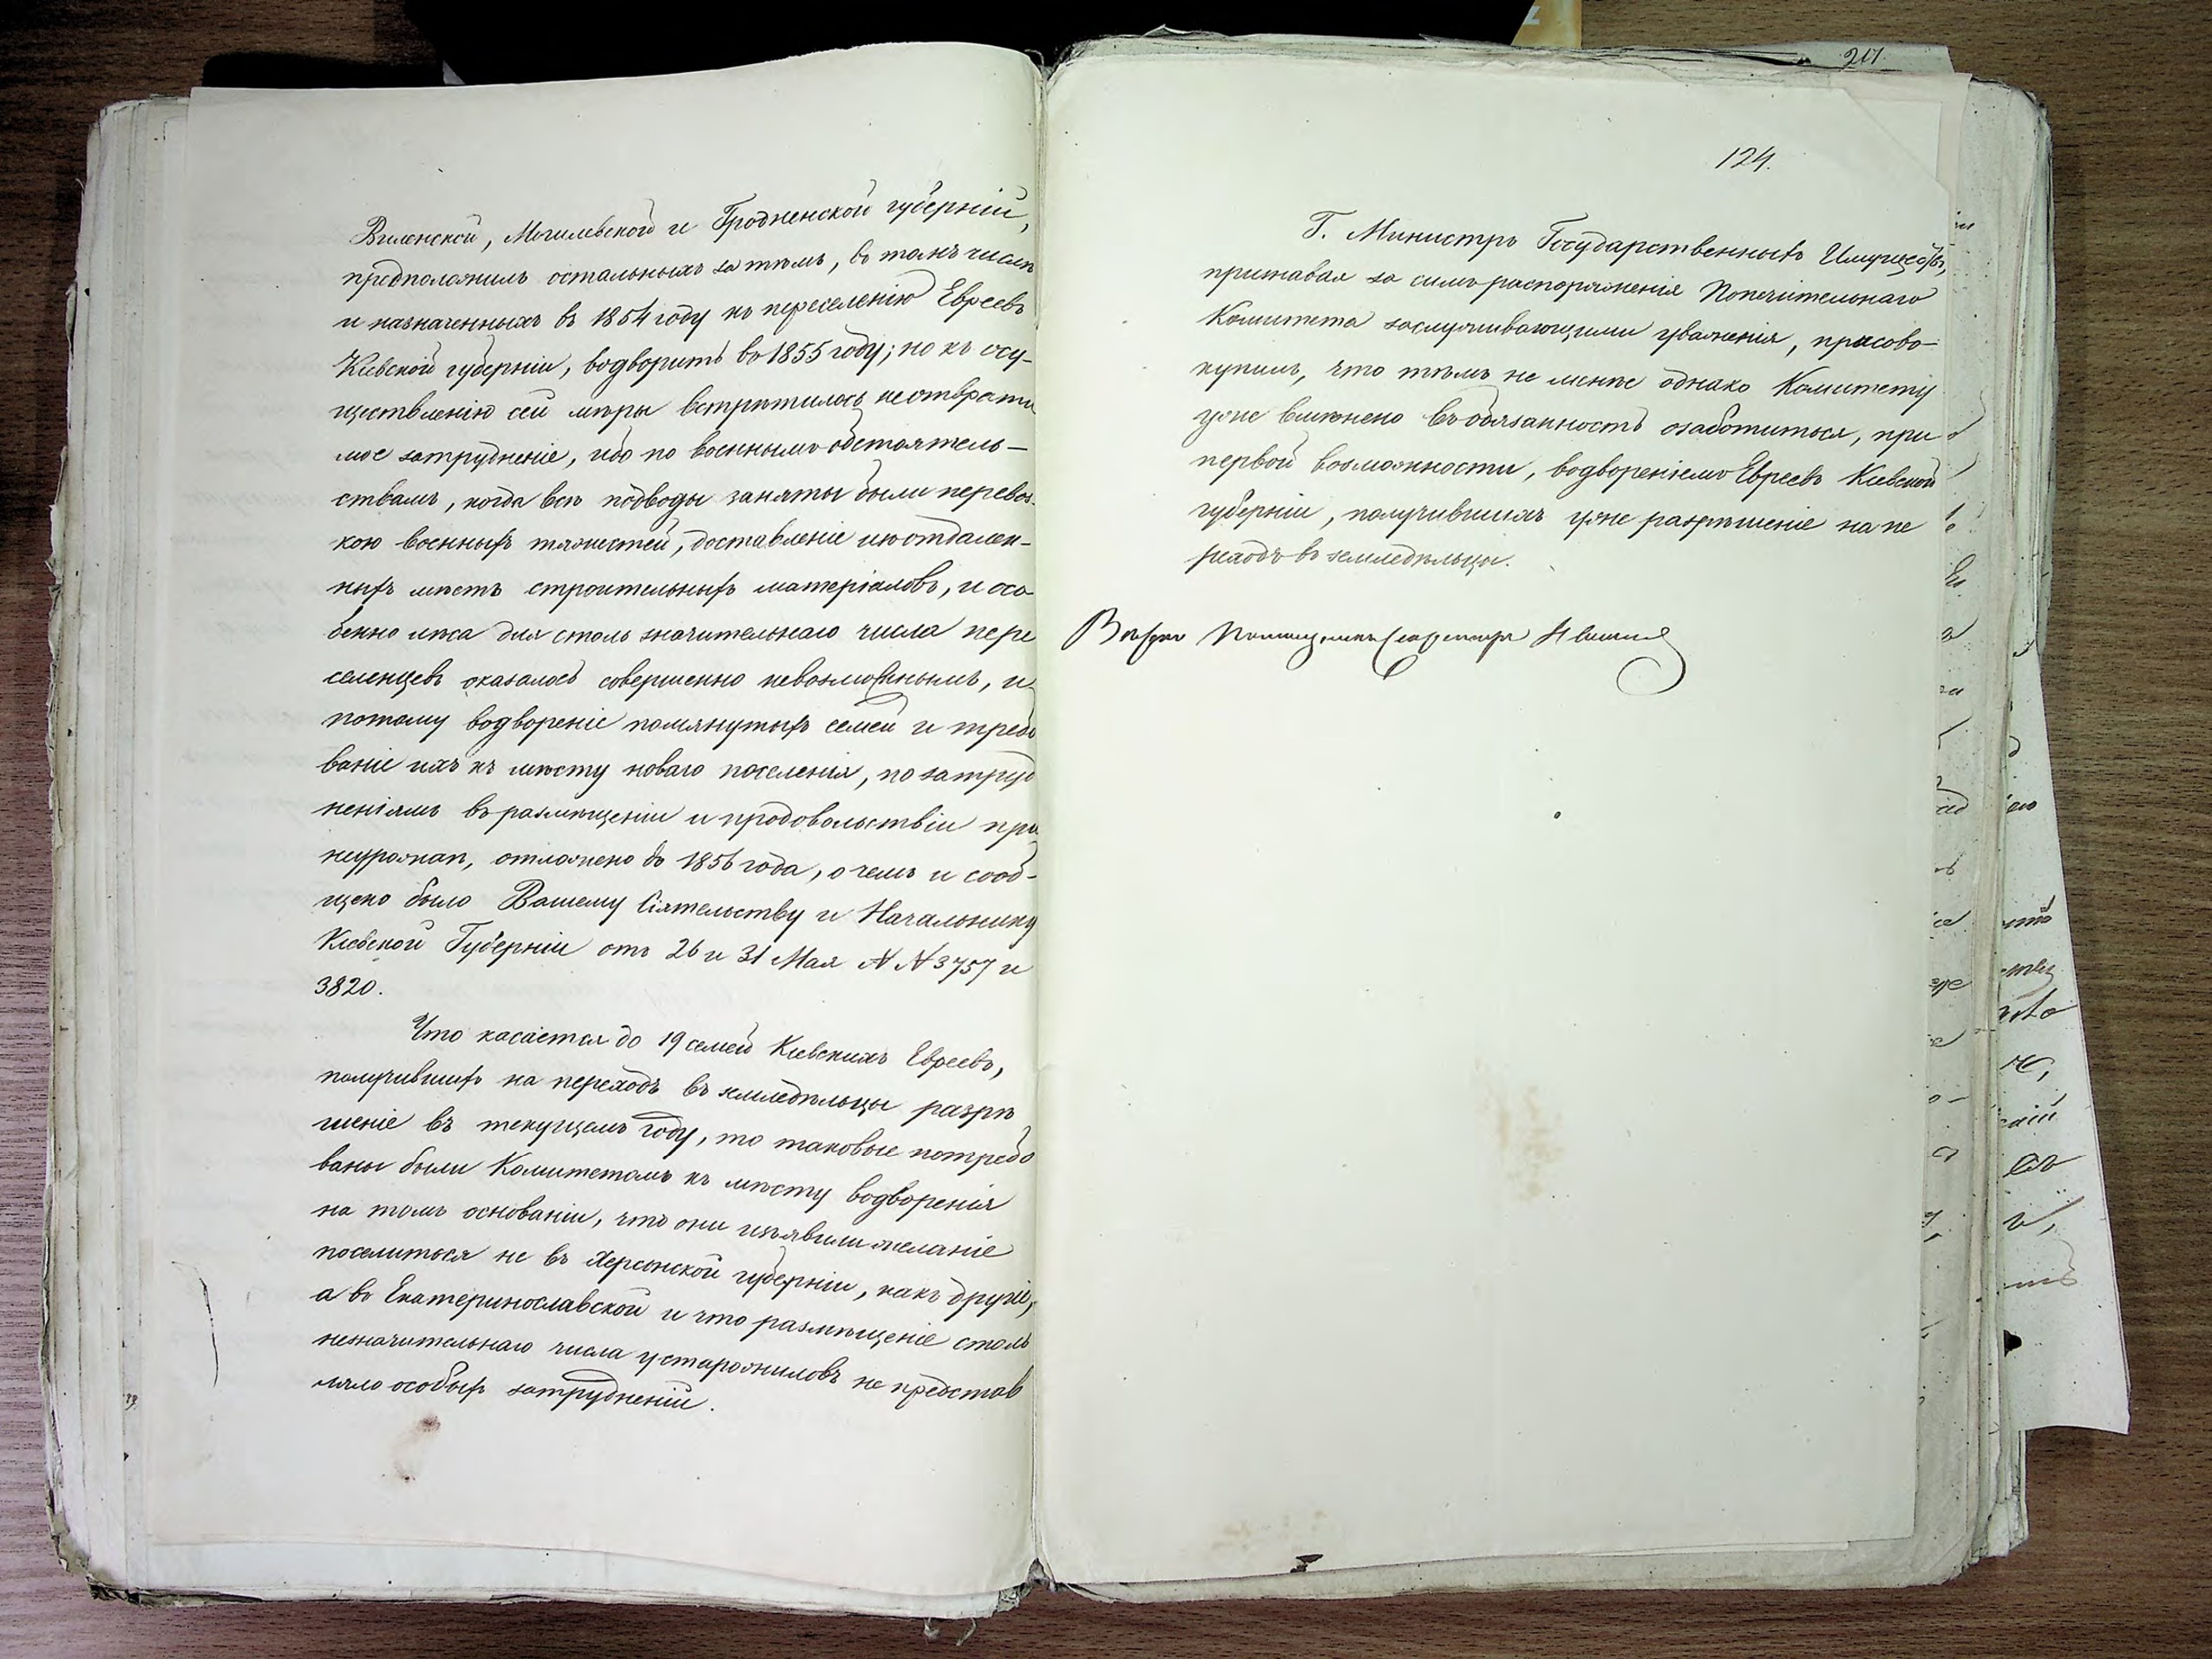 Виленской, Могилевской и Гродненской губерній,
предположилъ остальныхъ за тѣмъ, въ томъ числѣ
и назначенныхъ въ 1854 году къ переселенію Евреевъ
Кіевской губерніи, водворить въ 1855 году; но къ осу-
ществленію сей мѣры встрѣтилось неотврати
мое затрудненіе, ибо по военнымъ обстоятель-
ствамъ, когда всѣ подводы заняты были перевоз-
кою военныхъ тяжестей, доставленіе изъ отдален-
ныхъ мѣстъ строительныхъ матеріаловъ, и осо
бенно лѣса для столь значительнаго числа пере
селенцевъ оказалось совершенно невозможнымъ, и
потому водвореніе помянутыхъ семей и требо
ваніе ихъ къ мѣсту новаго поселенія, по затруд
неніямъ въ размѣщеніи и продовольствіи при
неурожаѣ, отложено до 1856 года, о чемъ и сооб-
щено было Вашему Сіятельству и Начальнику
Кіевской Губерніи отъ 26 и 31 Мая N N 3757 и
3820.
Что касается до 19 семей Кіевскихъ Евреевъ,
получившихъ на переходъ въ земледѣльцы разрѣ
шеніе въ текущемъ году, то таковые потребо
ваны были Комитетомъ къ мѣсту водворенія
на томъ основаніи, что они изъявили желаніе
поселиться не въ Херсонской губерніи, какъ другіе,
а въ Екатеринославской и что размѣщеніе столь
незначительнаго числа у старожиловъ не представ
ляло особыхъ затрудненій.
217
124.
Г. Министръ Государственныхъ Имуществъ,
признавая за симъ распоряженія Попечительнаго
Комитета заслуживающими уваженія, присово-
купилъ, что тѣмъ не менѣе однако Комитету
уже вмѣнено въ обязанность озаботиться, при
первой возможности, водвореніемъ Евреевъ Кіевской
губерніи, получившихъ уже разрѣшеніе на пе
реходъ въ земледѣльцы.
Вѣрно Помощникъ Секретаря